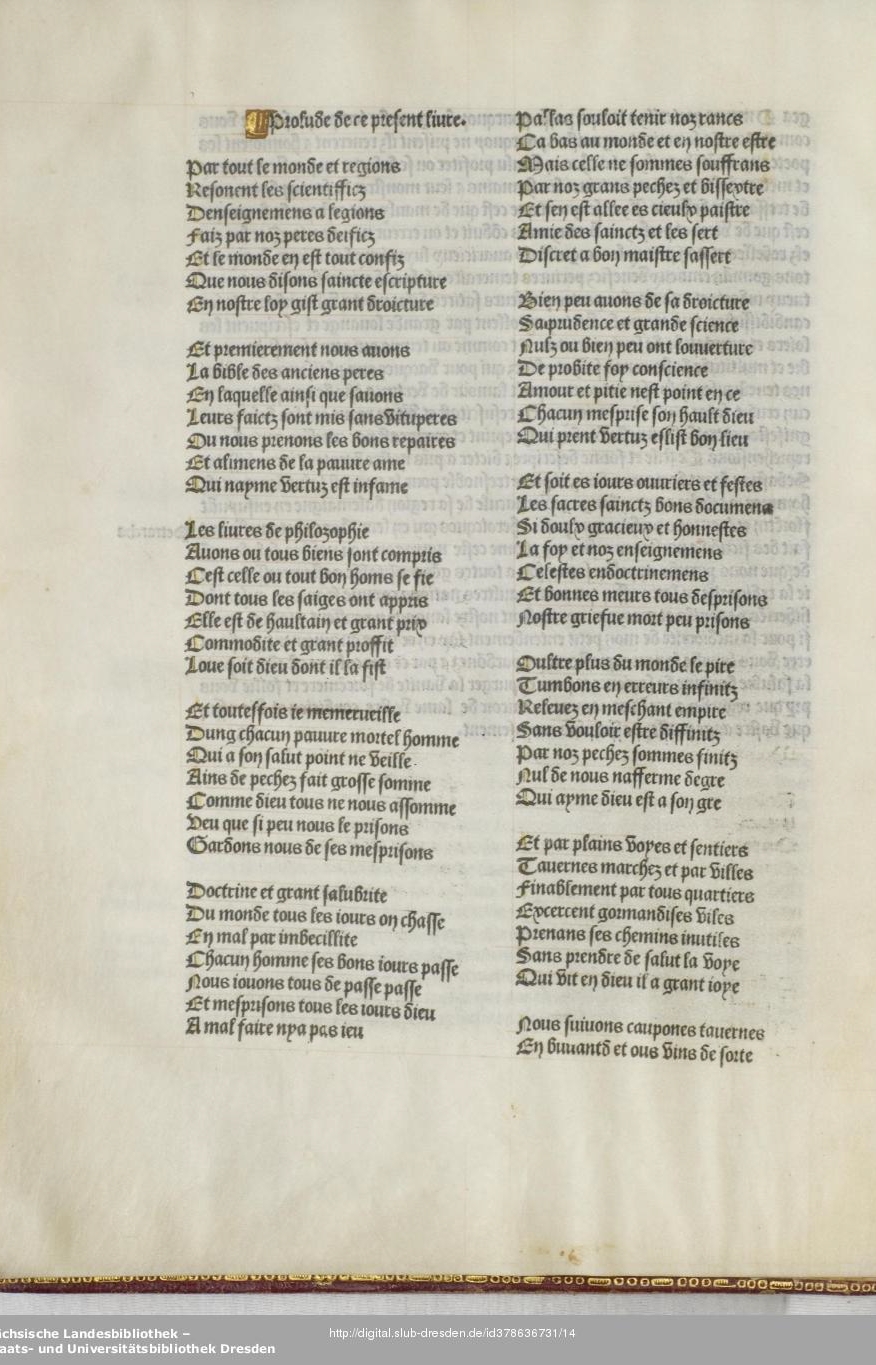 Prolude de ce present livre.
Par tout le monde et regions
Resonent les scientifficz
Denseignemens a legions
Faiz par noz peres deificz
Et le monde en est tout confiz
Que nous disons saincte escripture
En nostre loy gist grant droicture
Et premierement nous auons
La bible des anciens peres
En laquelle ainsi que sauons
Leurs faictz sont mis sans vituperes
Ou nous prenons les bons repaires
Et alimens de la pauure ame
Qui nayme vertuz est infame
Les liures de philozophie
Auons ou tous biens sont compris
Cest celle ou tout bon homs se fie
Dont tous les saiges ont appris
Elle est de haultain et grant prix
Commodite et grant proffit
Loue soit dieu dont il la fist
Et toutesfois ie memerueille
Dung chacun pauure mortel homme
Qui a son salut point ne veille
Ains de pechez fait grosse somme
Comme dieu tous ne nous assomme
Veu que si peu nous le prisons
Gardons nous de ses mesprisons
Doctrine et grant salubrite
Du monde tous les iours on chasse
En mal par imbecillite
Chacun homme ses bons iours passe
Nous iouons tous de passe passe
Et mesprisons tous les iours dieu
A mal faire nya pas ieu
Pallas souloit tenir noz rancs
Ca bas au monde et en nostre estre
Mais celle ne sommes souffrans
Par noz grans pechez et bissextre
Et sen est allee es cieulx paistre
Amie des sainctz et les sert
Discret a bon maistre sassert
Bien peu auons de sa droicture
Sa prudence et grande science
Nulz ou bien peu ont louuerture
De probite foy conscience
Amour et pitie nest point en ce
Chacun mesprise son hault dieu
Qui prent vertuz eslist bon lieu
Et soit es iours ouuriers et festes
Les sacres sainctz bons documens
Si doulx gracieux et honnestes
La foy et noz enseignemens
Celestes endoctrinemens
Et bonnes meurs tous desprisons
Nostre griefue mort peu prisons
Oultre plus du monde le pire
Tumbons en erreurs infinitz
Releuez en meschant empire
Sans vouloir estre diffinitz
Par noz pechez sommes finitz
Nul de nous nafferme degre
Qui ayme dieu est a son gre
Et par plains voyes et sentiers
Tauernes marchez et par villes
Finablement par tous quartiers
Excercent gormandises viles
Prenans ses chemins inutiles
Sans prendre de salut la voye
Qui vit en dieu il a grant ioye
Nous suiuons caupones tauernes
En buuantd et ous vins de sorte
ächsische Landesbibliothek –
aats- und Universitätsbibliothek Dresden
http://digital.slub-dresden.de/id378636731/14